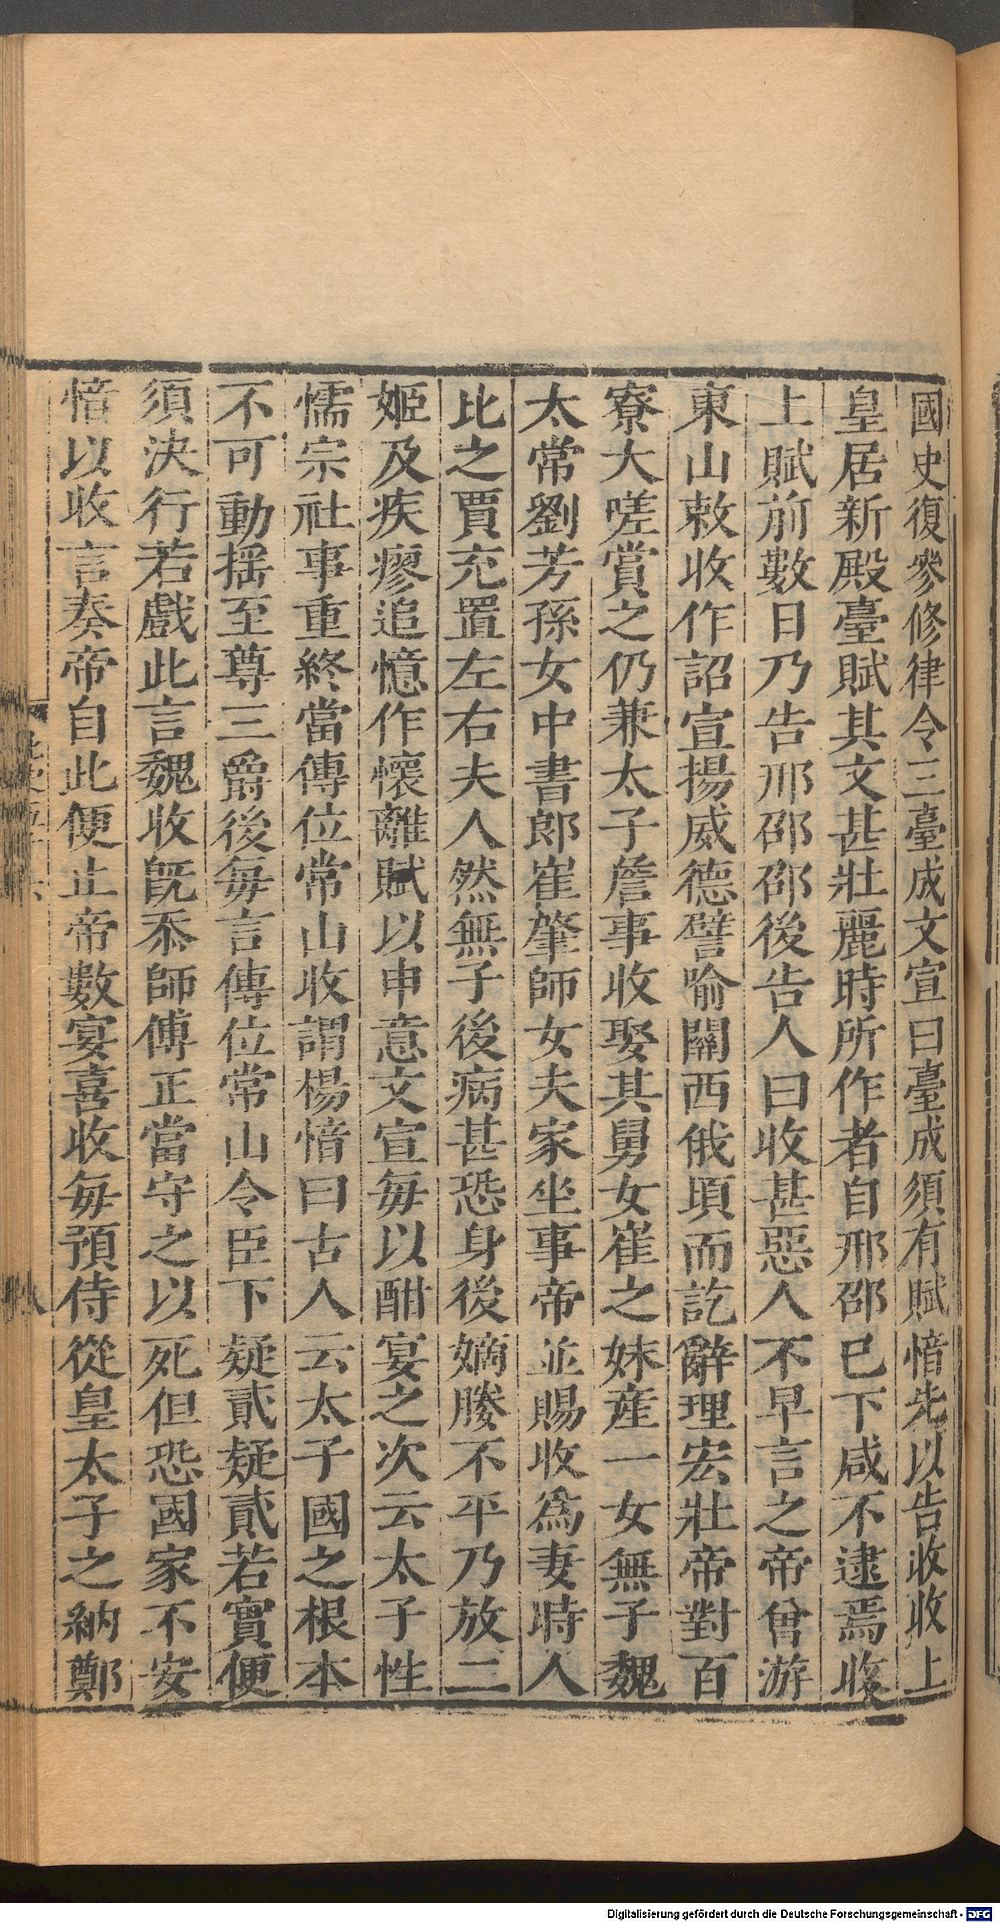 國史復參修律令三臺成文宣曰臺成須有賦愔先以告收收上
皇居新殿臺賦其文甚壯麗時所作者自邢邵已下咸不逮焉收
上賦前數日乃告邢邵邵後告人曰收甚惡人不早言之帝曾游
東山敕收作詔宣揚威德譬喻關西俄頃而訖辭理宏壯帝對百
寮大嗟賞之仍兼太子詹事收娶其舅女崔之妹產一女無子魏
太常劉芳孫女中書郎崔肇師女夫家坐事帝並賜收為妻時人
比之賈充置左右夫人然無子後病甚恐身後嫡媵不平乃放二
姬及疾瘳追憶作懷離賦以申意文宣每以酣宴之次云太子性
懦宗社事重終當傳位常山收謂楊愔曰古人云太子國之根本
不可動搖至尊三爵後每言傳位常山令臣下疑貳疑貳若實便
須決行若戲此言魏收旣忝師傅正當守之以死但恐國家不安
愔以收言奏帝自此便止帝數宴喜收每預侍從皇太子之納鄭
八
Digitalisierung gefördert durch die Deutsche Forschungsgemeinschaft - DFG